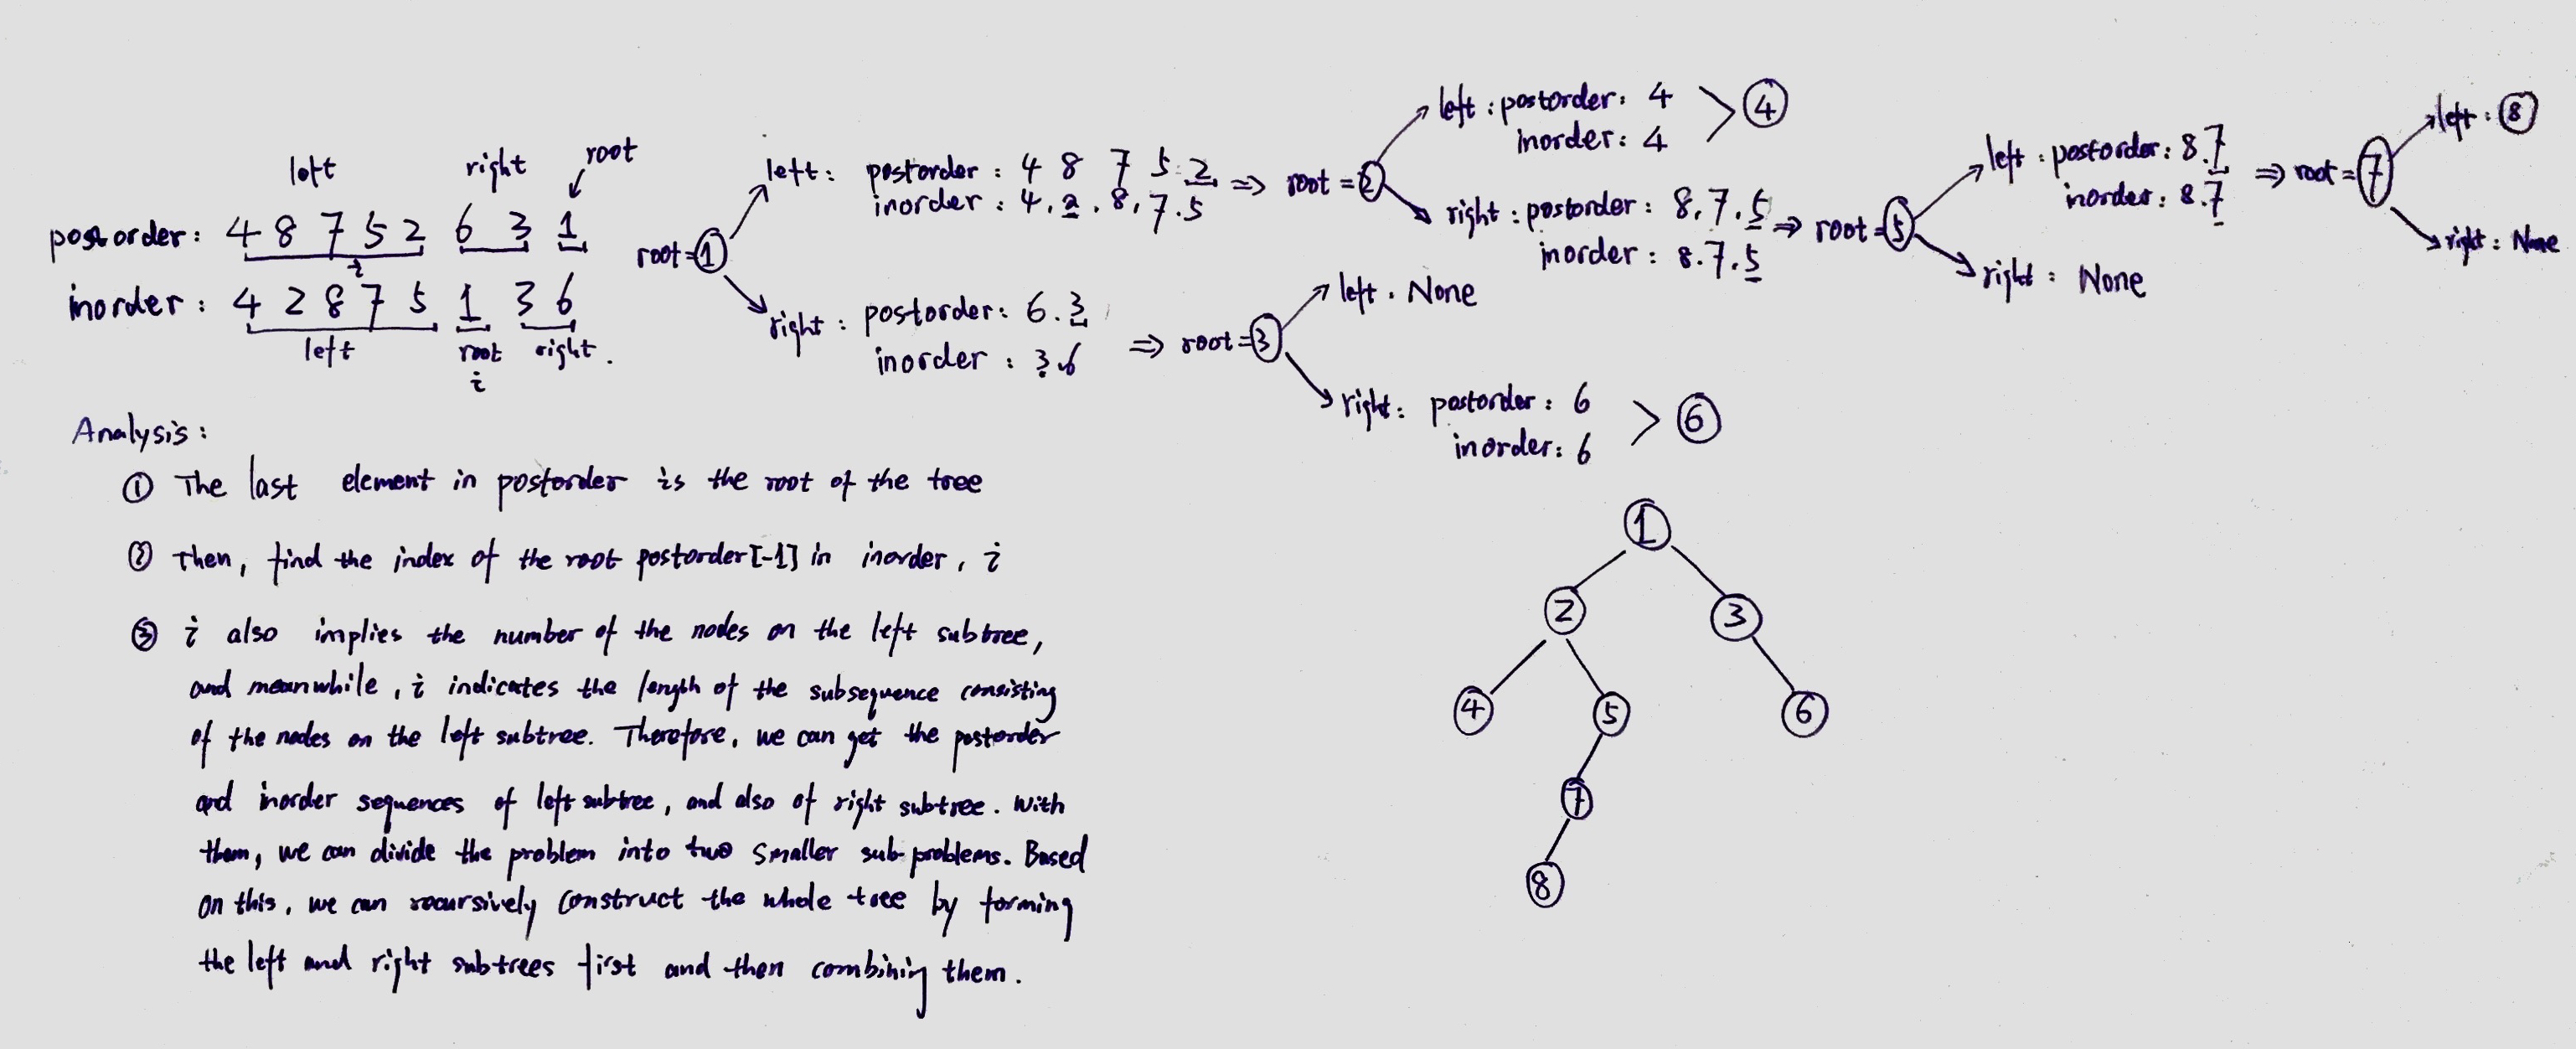 left right root
postorder: 4 8 7 5 2 6 3 1
i
inorder: 4 2 8 7 5 1 3 6
left root right.
i
root=1
left: postorder: 4 8 7 5 2 ⇒ root=2
inorder: 4, 2, 8, 7. 5
left: postorder: 4 > 4
inorder: 4
right: postorder: 8, 7, 5 ⇒ root=5
inorder: 8. 7. 5
left: postorder: 8.7 ⇒ root=7
inorder: 8.7
left: 8
right: None
right: None
right: postorder: 6.3 ⇒ root=3
inorder: 3.6
left. None
right: postorder: 6 > 6
inorder: 6
Analysis:
① The last element in postorder is the root of the tree
② Then, find the index of the root postorder[-1] in inorder, i
③ i also implies the number of the nodes on the left subtree,
and meanwhile, i indicates the length of the subsequence consisting
of the nodes on the left subtree. Therefore, we can get the postorder
and inorder sequences of left subtree, and also of right subtree. With
them, we can divide the problem into two smaller sub-problems. Based
on this, we can recursively construct the whole tree by forming
the left and right subtrees first and then combining them.
1
2 3
4 5 6
7
8